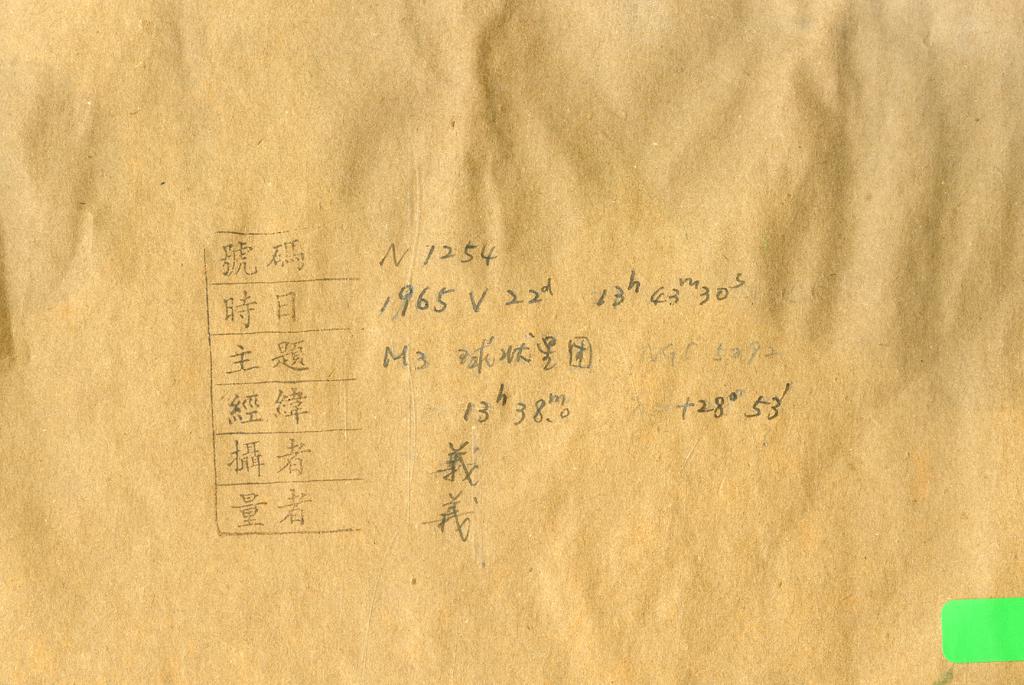 號碼 N 1254
時日 1965 V 22ᵈ 13ʰ 43ᵐ 30ˢ
主題 M3 球状星团 NGC 5292
經緯 13ʰ 38ᵐ.0 +28° 53′
攝者 義
量者 義